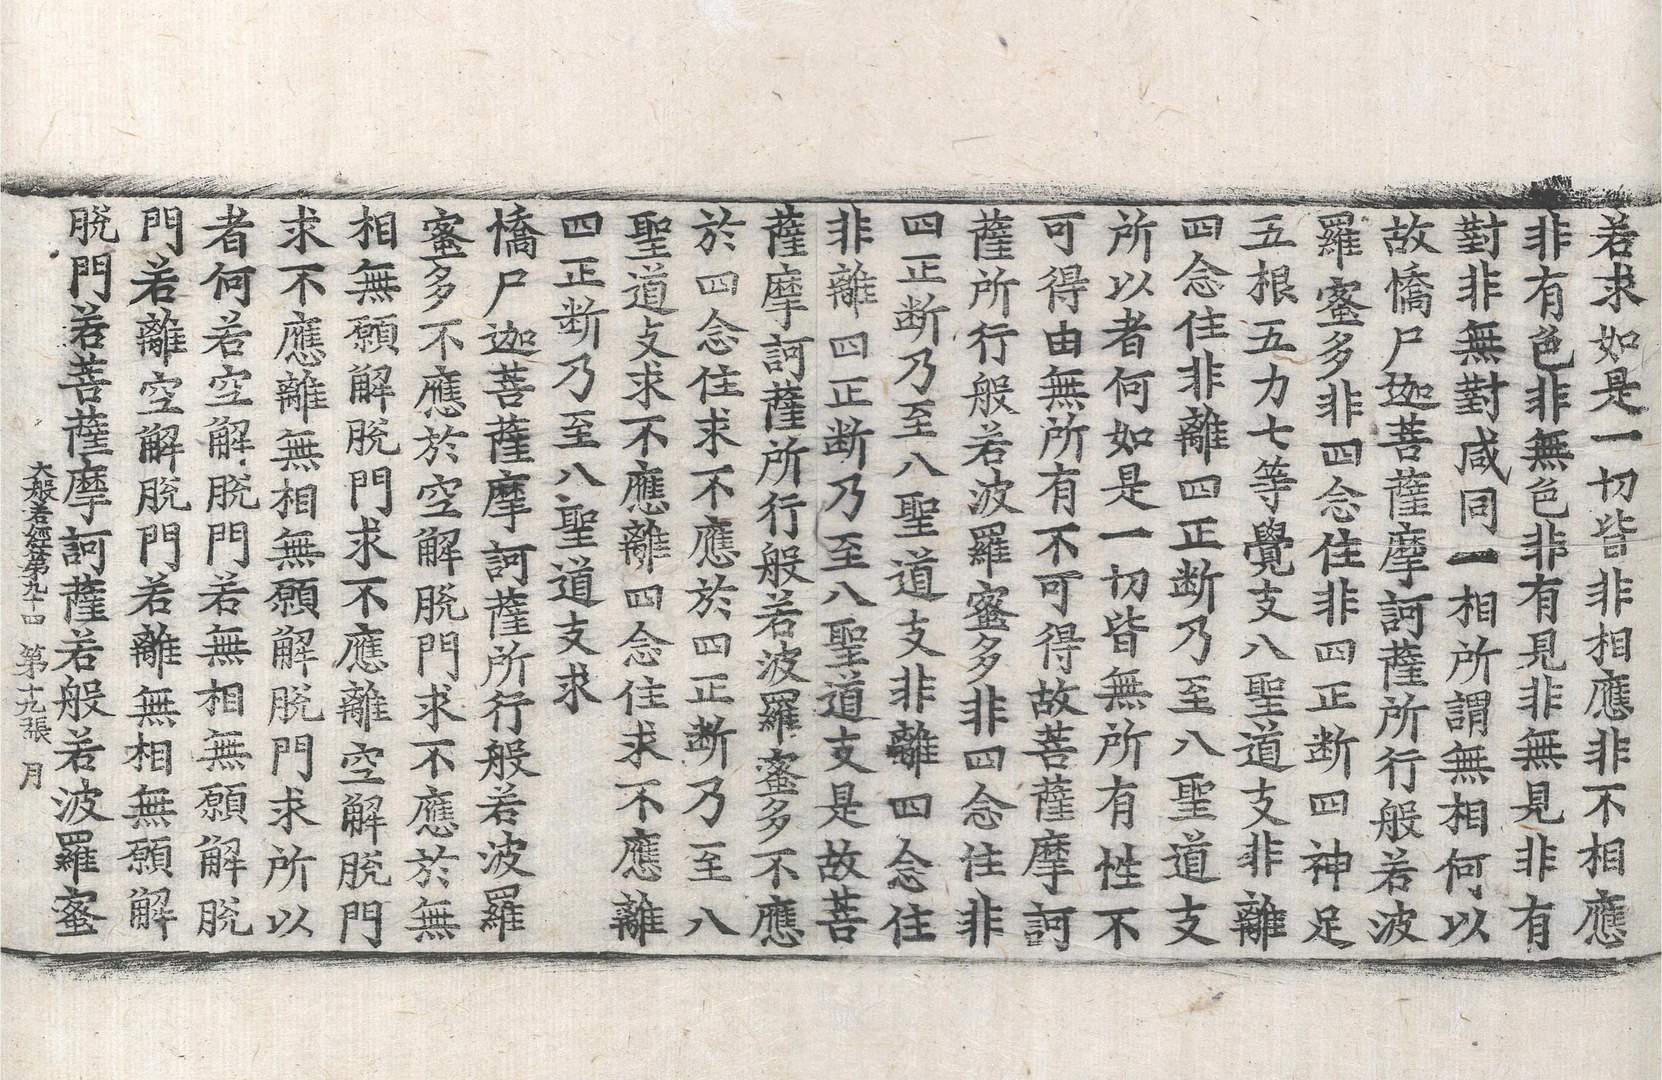 若求如是一切皆非相應非不相應
非有色非無色非有見非無見非有
對非無對咸同一相所謂無相何以
故憍尸迦菩薩摩訶薩所行般若波
羅蜜多非四念住非四正断四神足
五根五力七等覺支八聖道支非離
四念住非離四正断乃至八聖道支
所以者何如是一切皆無所有性不
可得由無所有不可得故菩薩摩訶
薩所行般若波羅蜜多非四念住非
四正断乃至八聖道支非離四念住
非離四正断乃至八聖道支是故菩
薩摩訶薩所行般若波羅蜜多不應
於四念住求不應於四正断乃至八
聖道支求不應離四念住求不應離
四正断乃至八聖道支求
憍尸迦菩薩摩訶薩所行般若波羅
蜜多不應於空解脫門求不應於無
相無願解脫門求不應離空解脫門
求不應離無相無願解脫門求所以
者何若空解脫門若無相無願解脫
門若離空解脫門若離無相無願解
脫門若菩薩摩訶薩若般若波羅蜜
大般若經第九十四 第十九張 月